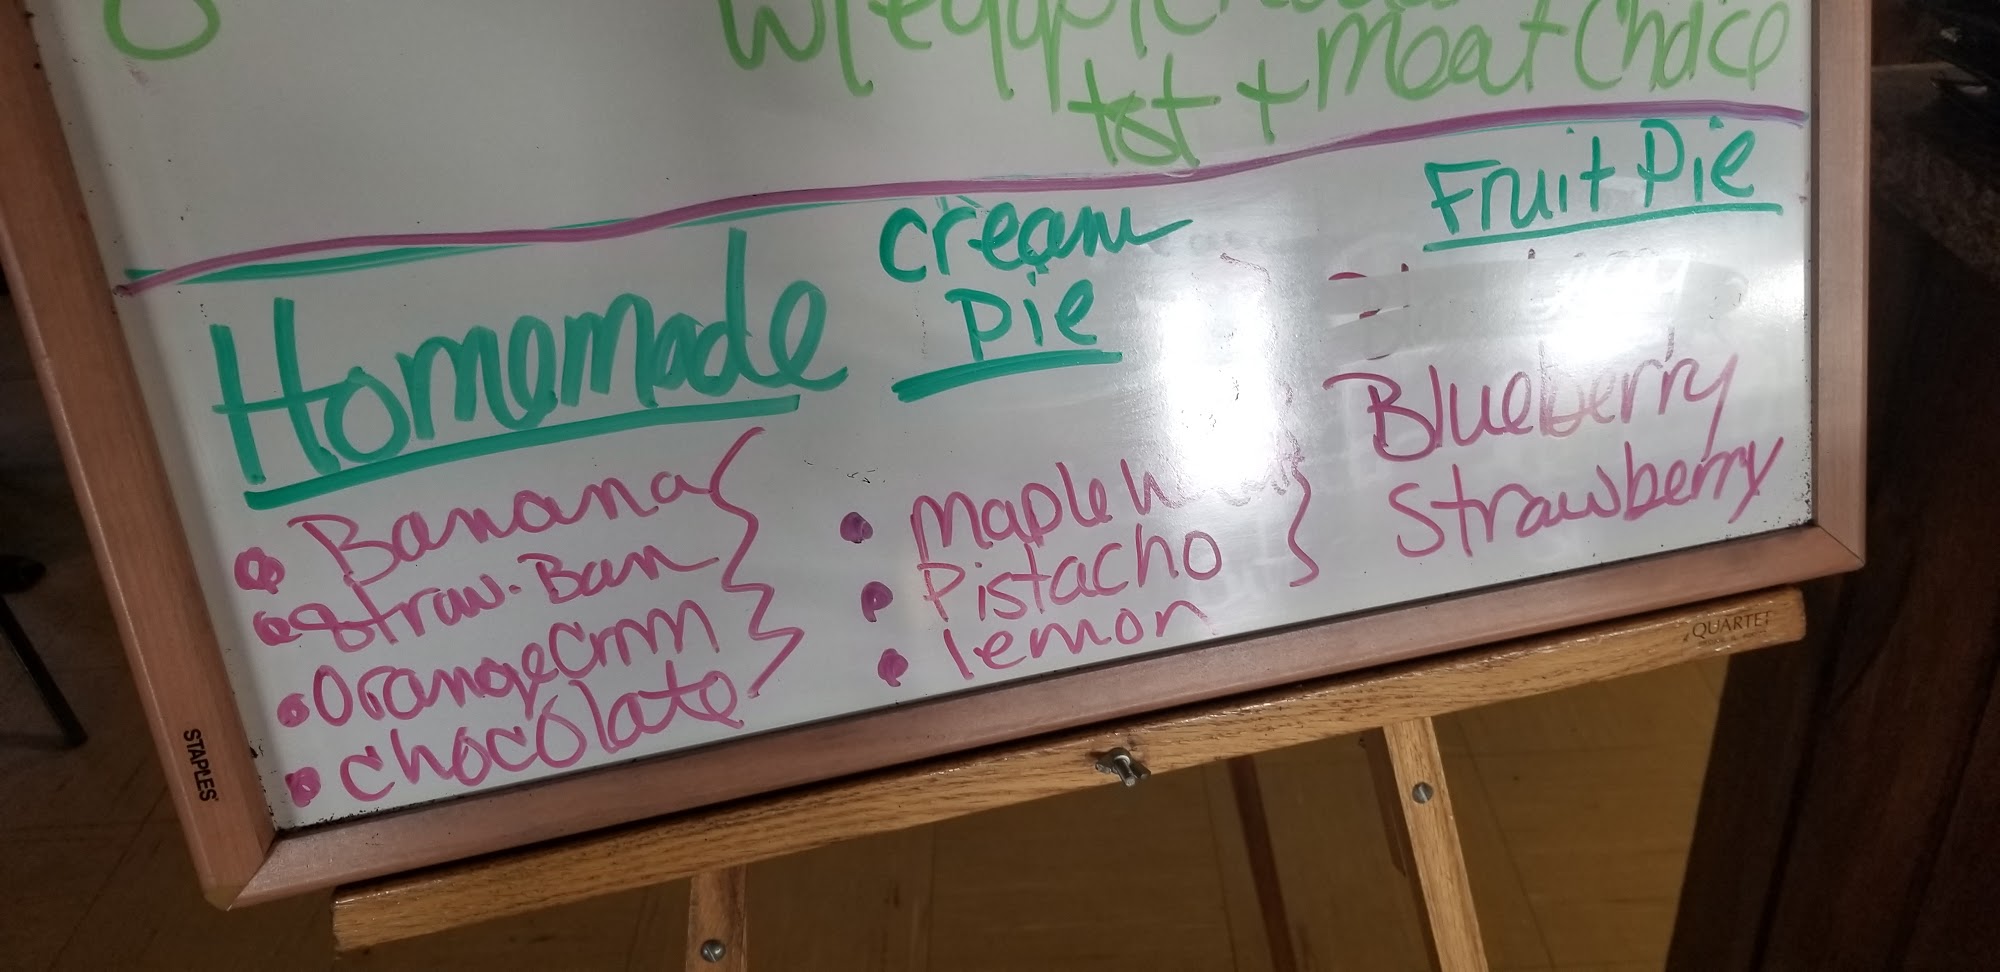 tst + meat Choice
Homemade
cream
Pie
Fruit Pie
Banana
Straw. Ban
Orange Crmm
chocolate
maple
Pistacho
lemon
Blueberry
Strawberry
QUARTET
STAPLES